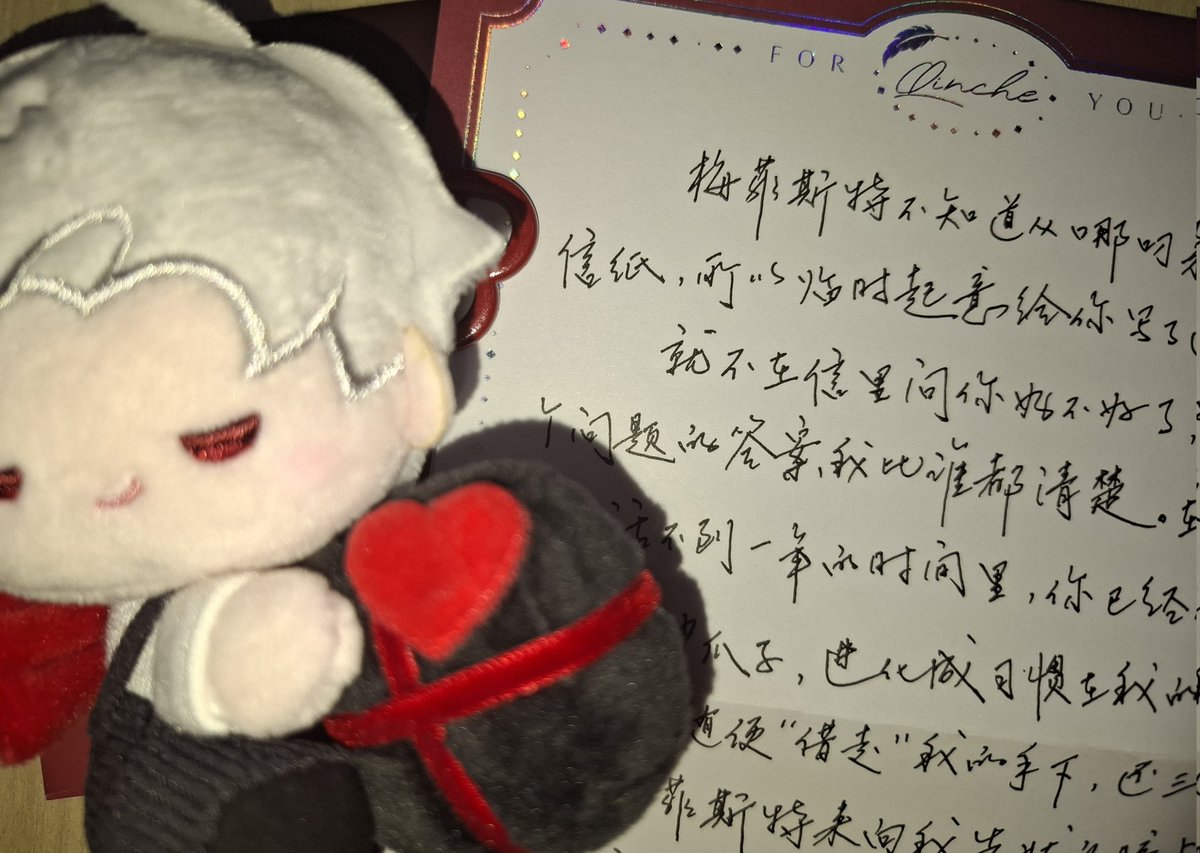 FOR Qinche YOU
梅菲斯特不知道从哪叼来
信纸，所以临时起意给你写了
就不在信里问你好不好了，
个问题的答案，我比谁都清楚。在
不到一年的时间里，你已经
爪子，进化成习惯在我的
便“借走”我的手下，还三
菲斯特来向我告状